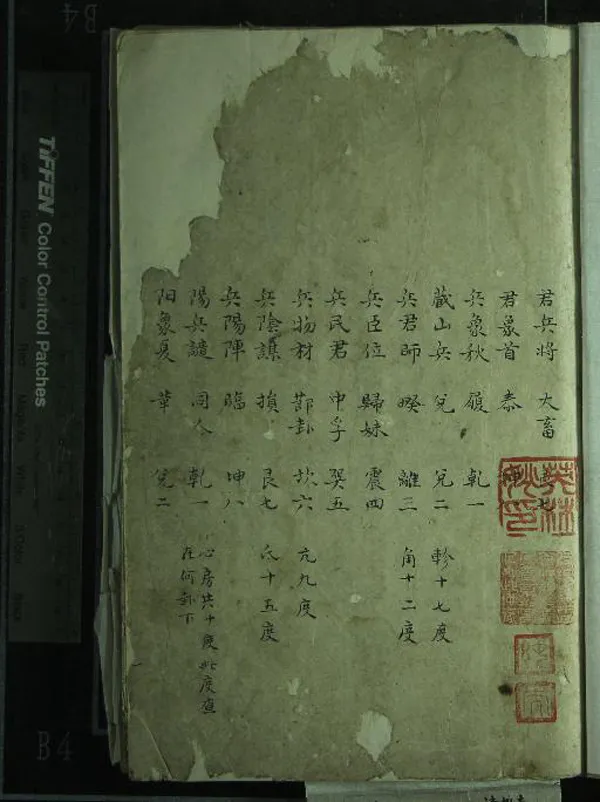 君兵將 大畜
君象首 泰
兵象秋 履 乾一
藏山兵 兌 兌二 軫十七度
兵君師 睽 離三 角十二度
兵臣位 歸妹 震四
兵民君 中孚 巽五
兵物材 節卦 坎六 亢九度
兵陰謀 損 艮七 氐十五度
兵陽陣 臨 坤八
陽兵譴 同人 乾一 心房共十度此度查
在何卦下
阳象夏 革 兌二
TIFFEN Color Control Patches
B4
B4